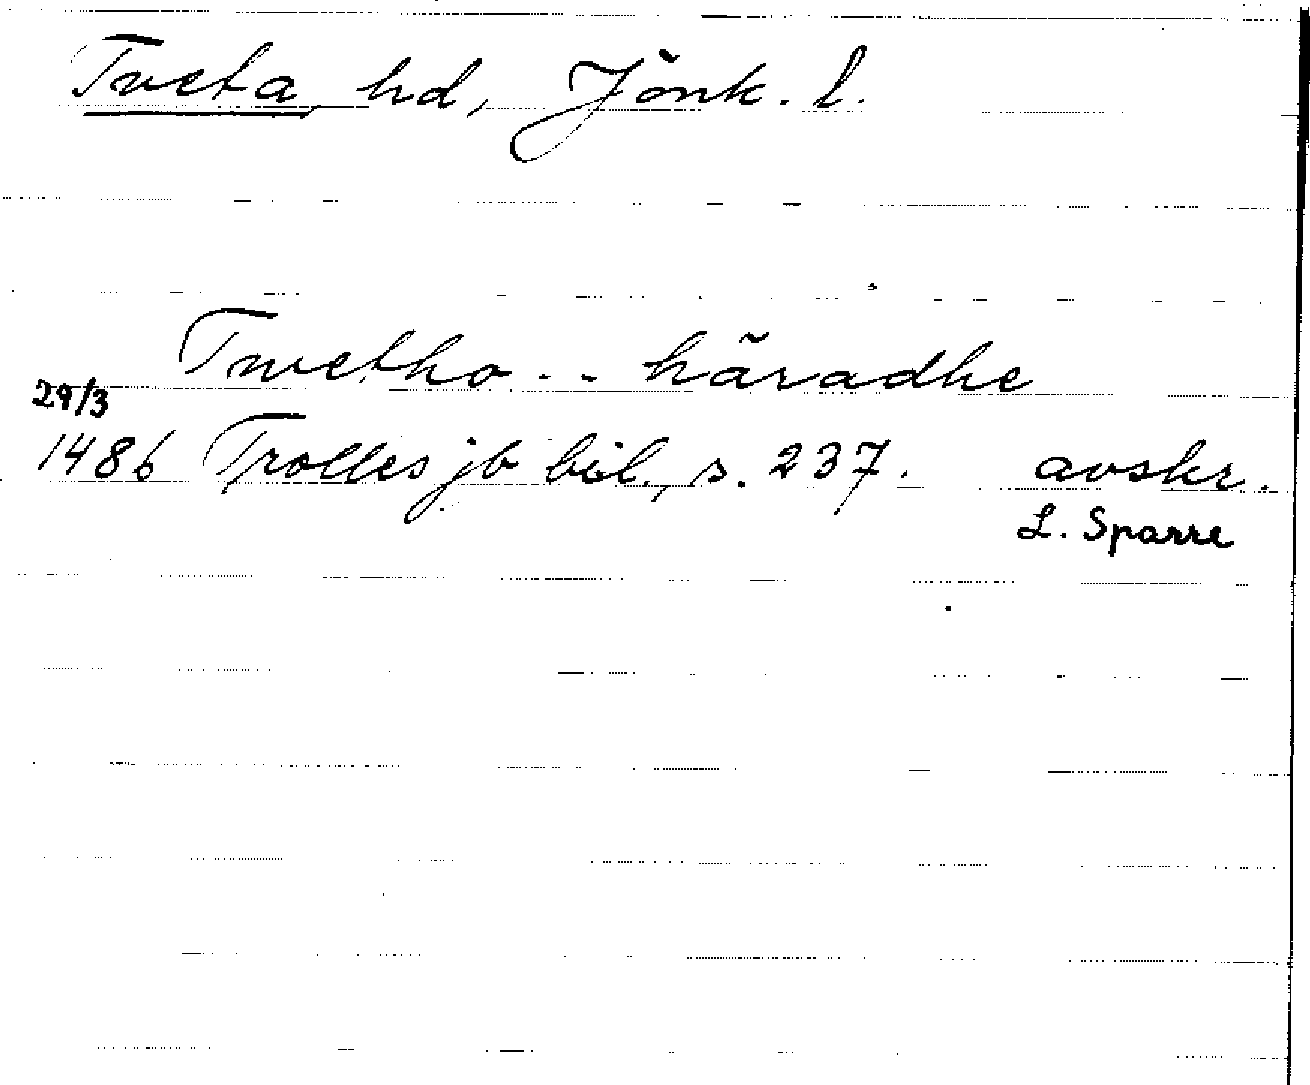 Tveta hd, Jönk. l.
Twetho .. häradhe
29/3
1486 Trolles jb bil., s. 237. avskr.
L. Sparre